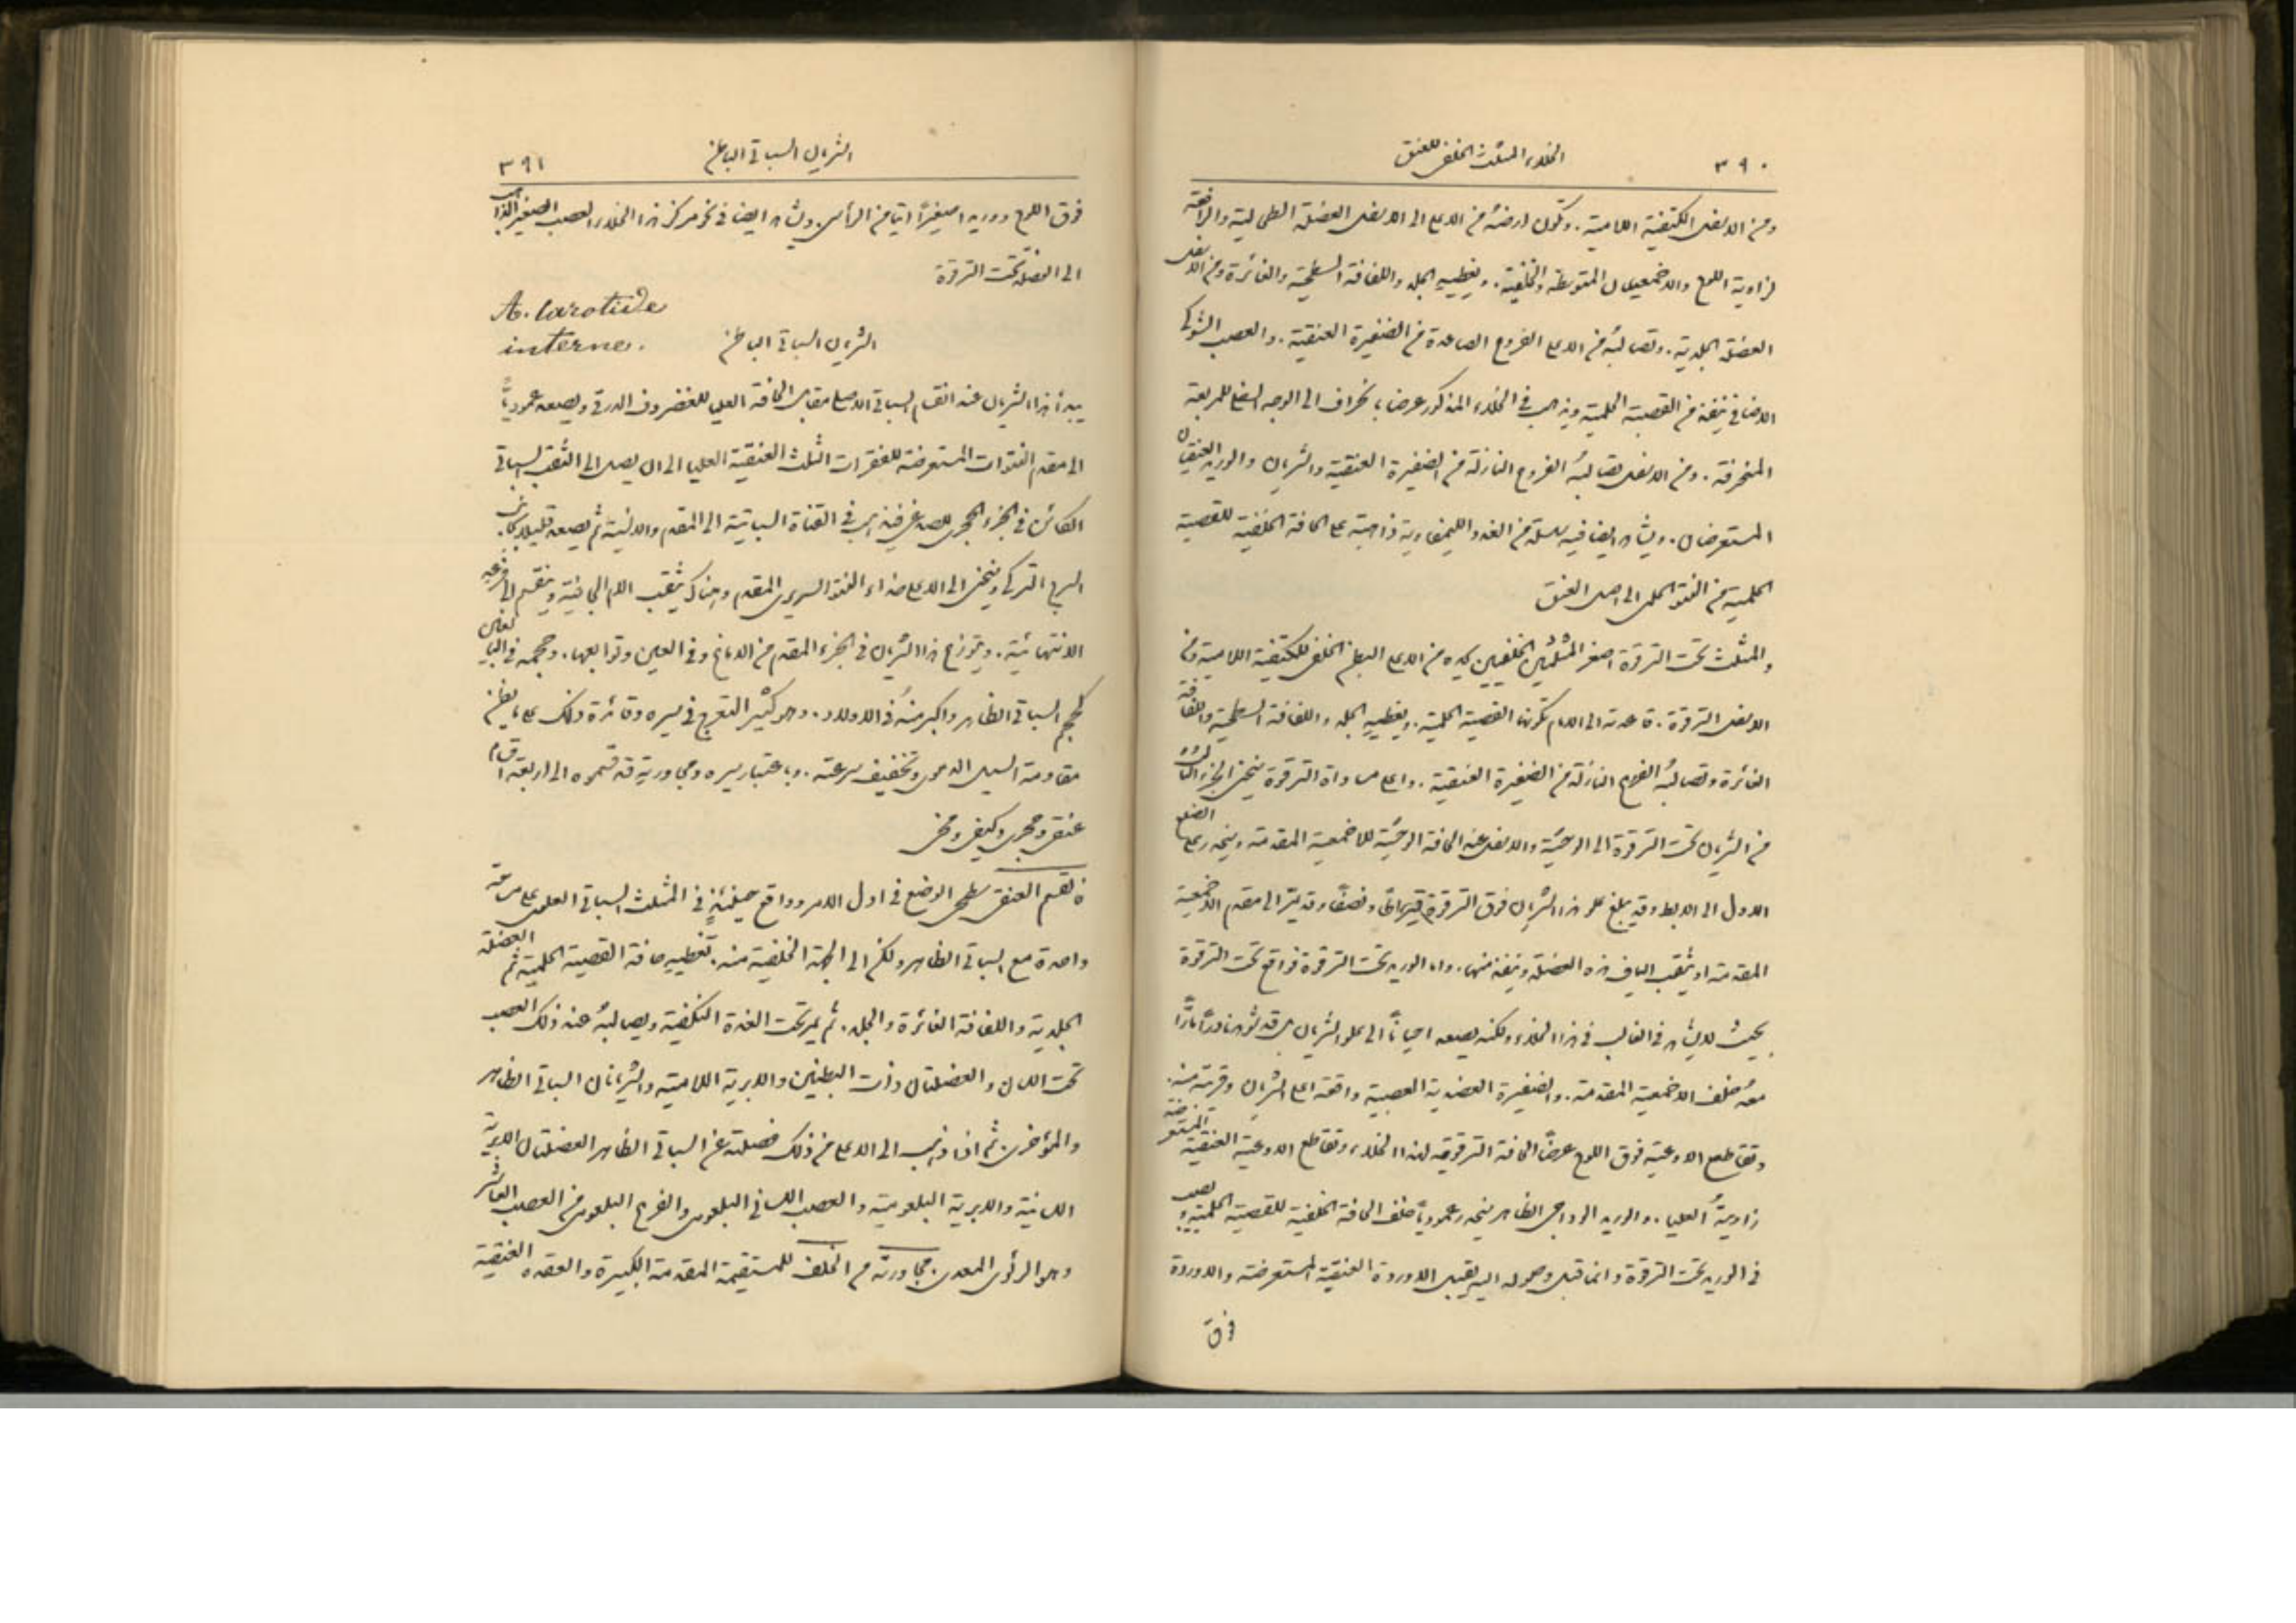 ٣٩٠ الخلاء المثلث الخلفي للعنق
ومن الاسفل الكتفية اللامية. وتكون ارضه من الاعلى الى الاسفل العضلة الطحالية والرافعة
لزاوية اللوح والاخمعيتان المتوسطة والخلفية. ويغطيه الجلد واللفافة السطحية والغائرة ومن الاسفل
العضلة الجلدية. وتصالبه من الاعلى الفروع الصاعدة من الضفيرة العنقية. والعصب الشوكي
الاضافي ينفذ من القصية الحلمية ويذهب في الخلاء المذكور عرضا بانحراف الى الوجه السفلي للمربعة
المنحرفة. ومن الاسفل تصالبه الفروع النازلة من الضفيرة العنقية والشريان والوريد العنقيان
المستعرضان. ويشاهد ايضا فيه سلسلة من الغدد الليمفاوية ذاهبة على الحافة الخلفية للقصية
الحلمية من النتو الحلمي الى اصل العنق
والمثلث تحت الترقوة اصغر المثلثين الخلفيين يحده من الاعلى البطن الخلفي للكتفية اللامية ومن
الاسفل الترقوة. قاعدته الى الامام تكونها القصية الحلمية. ويغطيه الجلد واللفافة السطحية واللفافة
الغائرة وتصالبه الفروع النازلة من الضفيرة العنقية. واعلى مساواة الترقوة ينحني الجزء الثالث
من الشريان تحت الترقوة الى الوحشية والاسفل عند الحافة الوحشية للاخمعية المقدمة وينحدر على الضلع
الاول الى الابط وقد يبلغ علو هذا الشريان فوق الترقوة قيراطا ونصفا وقد يمر الى مقدم الاخمعية
المقدمة او يثقب الياف هذه العضلة وينفذ منها. واما الوريد تحت الترقوة فواقع تحت الترقوة
بحيث لا يشاهد في الغالب في هذا الخلاء ولكنه يصعد احيانا الى علو الشريان بل قد شوهد نادرا مارا
معه خلف الاخمعية المقدمة. والضفيرة العضدية العصبية واقعة اعلى الشريان وقريبة منه.
وتقاطع الاوعية فوق اللوح عرضا الحافة الترقوية لهذا الخلاء وتقاطع الاوعية العنقية المستعرضة
زاويته العليا. والوريد الوداجي الظاهر ينحدر عموديا خلف الحافة الخلفية للقصية الحلمية ويصب
في الوريد تحت الترقوة وانما قبل وصوله اليه يقبل الاوردة العنقية المستعرضة والاوردة
فوق
الشريان السباتي الباطن ٣٩١
فوق اللوح ووريدا صغيرا اتيا من الرأس. ويشاهد ايضا في نحو مركز هذا الخلاء العصب الصغير الذاهب
الى العضلة تحت الترقوة
A. Carotide
interne.
الشريان السباتي الباطن
يبدأ هذا الشريان عند انقسام السباتي الاصلي مقابل الحافة العليا للغضروف الدرقي ويصعد عموديا
الى مقدم النتوات المستعرضة للفقرات الثلث العنقية العليا الى ان يصل الى الثقب السباتي
الكائن في الجزء الحجري للصدغي فيذهب في القناة السباتية الى المقدم والانسية ثم يصعد قليلا بجانب
السرج التركي وينحني الى الاعلى حذاء النتو السريري المقدم وهناك يثقب الام الجافية وينقسم الى فرعيه
الانتهائية. ويتوزع هذا الشريان في الجزء المقدم من الدماغ وفي العين وتوابعها. وحجمه في البالغين
كحجم السباتي الظاهر واكبر منه في الاولاد. وهو كثير التعرج في سيره وفائدة ذلك على ما يظن
مقاومة السيل الدموي وتخفيف سرعته. وباعتبار سيره ومجاوريته قد قسموه الى اربعة اقسام
عنقي وحجري وكهفي ومخي
فالقسم العنقي سطحي الوضع في اول الامر وواقع حينئذ في المثلث السباتي العلوي على مساحة
واحدة مع السباتي الظاهر ولكن الى الجهة الخلفية منه. تغطيه حافة القصية الحلمية ثم العضلة
الجلدية واللفافة الغائرة والجلد. ثم يمر تحت الغدة النكفية ويصالبه عند ذلك العصب
تحت اللسان والعضلتان ذات البطنين والابرية اللامية والشريانان السباتي الظاهر
والمؤخري. ثم اذا ذهب الى الاعلى من ذلك فصلته عن السباتي الظاهر العضلتان الابرية
اللسانية والابرية البلعومية والعصب اللساني البلعومي والفرع البلعومي من العصب العاشر
وهو الرئوي المعدي. مجاورته من الخلف للمستقيمة المقدمة الكبيرة والعقدة العنقية